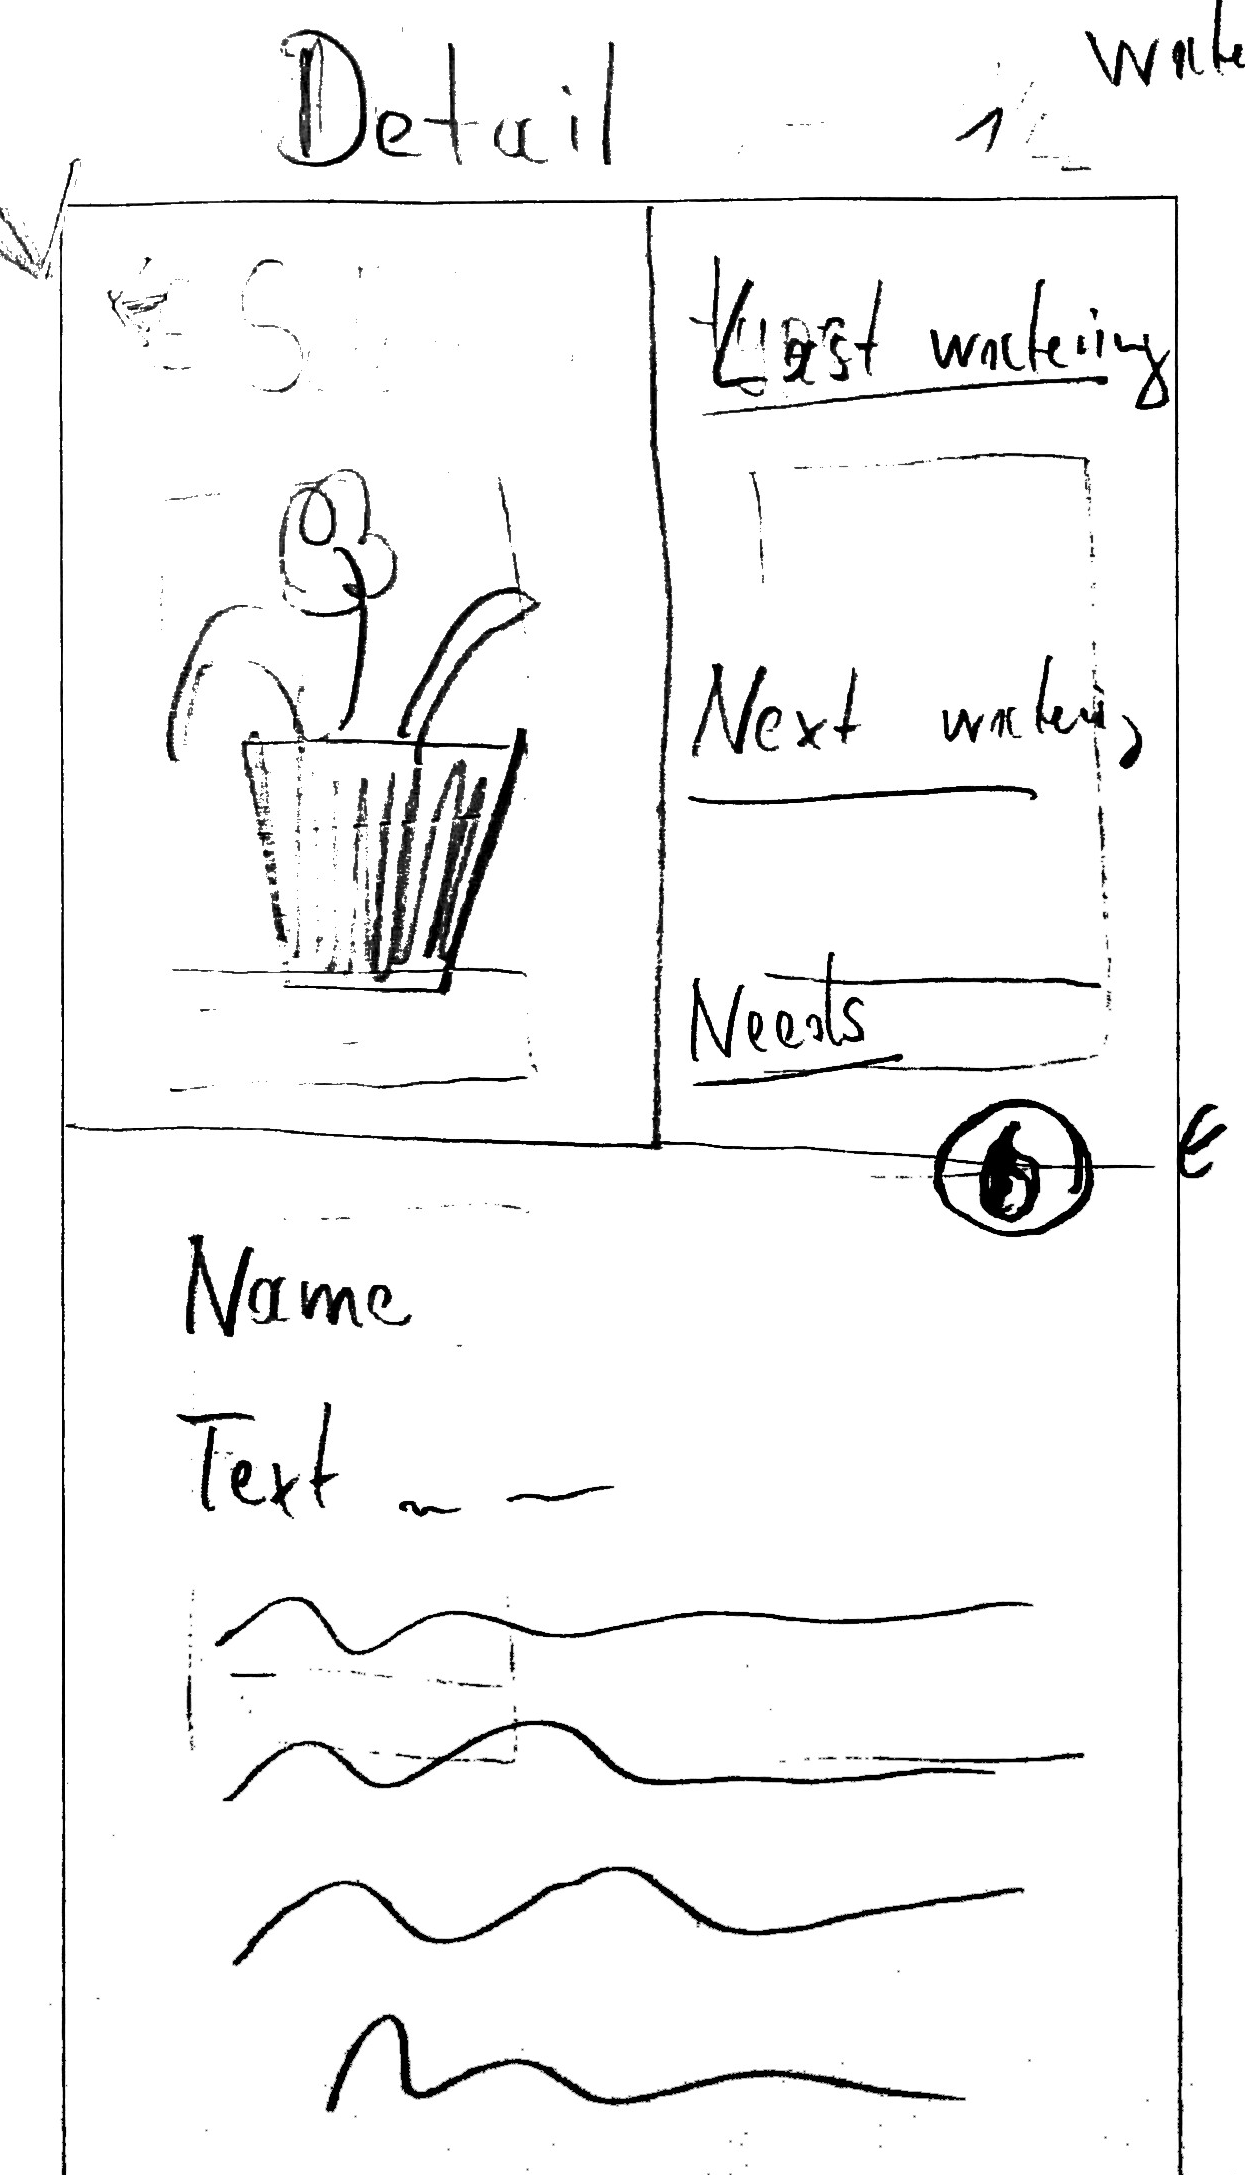 Detail
Last watering
Next watering
Needs
Name
Text